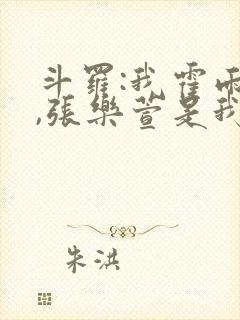 斗羅:我霍雨
,張樂萱是我
朱洪